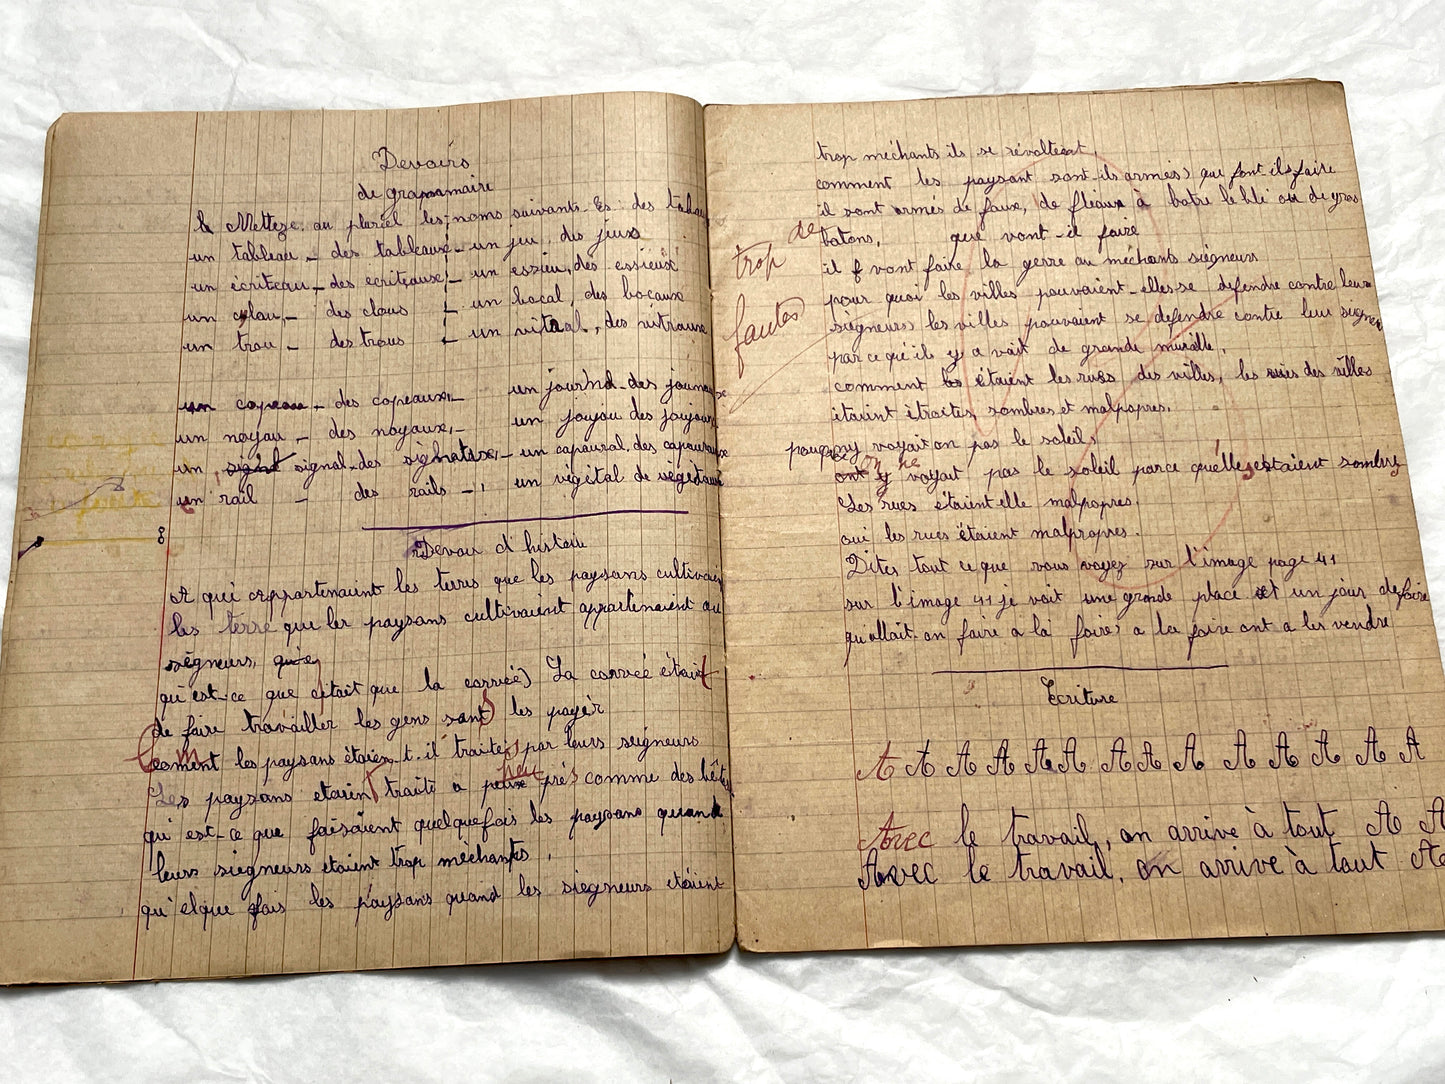 Devoirs
de grammaire
Mettez au pluriel les noms suivants. Ex: des tableau
un tableau - des tableaux - un jeu, des jeux
un écriteau - des ecriteaux - un essieu, des essieux
un clou, - des clous - un bocal, des bocaux
un trou - des trous - un vitral, des vitraux
un copeau - des copeaux, - un journal - des journaux
un noyau - des noyaux, - un joujou des joujoux
un signal - des signataux, - un capaural, des capouraux
un rail - des rails - un végétal de végétaux
Devou d'histoire
A qui appartenaint les terres que les paysans cultivaien
les terre que les paysans cultivaient appartenaient au
ségneurs,
qu'est-ce que c'était que la corvée) La corvée étaitt
de faire travailler les gens sant les payér
Comment les paysans étaien-t-il traités par leurs seigneurs
Les paysans etaient traité a peu prés comme des bêtes
qu'est-ce que faisaient quelquefois les paysans quand
leurs siegneurs etaient trop méchants,
qu'elque fois les paysans quand les siegneurs etaient
trop méchants ils se révoltent,
comment les paysant sont-ils armés) que font ils faire
il sont armés de faux, de fléaux à batre le blé ou de gros
batons, que vont-il faire
trop de
fautes
il vont faire la gerre au méchants siégneurs
pour quoi les villes pouvaient-elles se defendre contre leurs
siegneurs les villes pouvaient se defendre contre leur siegneur
par ce qu'il y a vait de grande muraille,
comment étaient les rues des villes, les rues des villes
étaient étraites, sombres et malpopres.
pourquoi ny voyait on pas le soleil,
on ne
ont y voyait pas le soleil parce quélles estaient sombres
Les rues étaient elle malpopres.
oui les rues étaient malpropres.
Dites tout ce que vous voyez sur l'image page 41
sur l'image 41 je voit une grande place et un jour de foire
qu'allait-on faire a la foire a la foire ont a les vendre
Ecriture
A A A A A A A A A A A A A A
Avec le travail, on arrive à tout A A
Avec le travail, on arrive à tout A